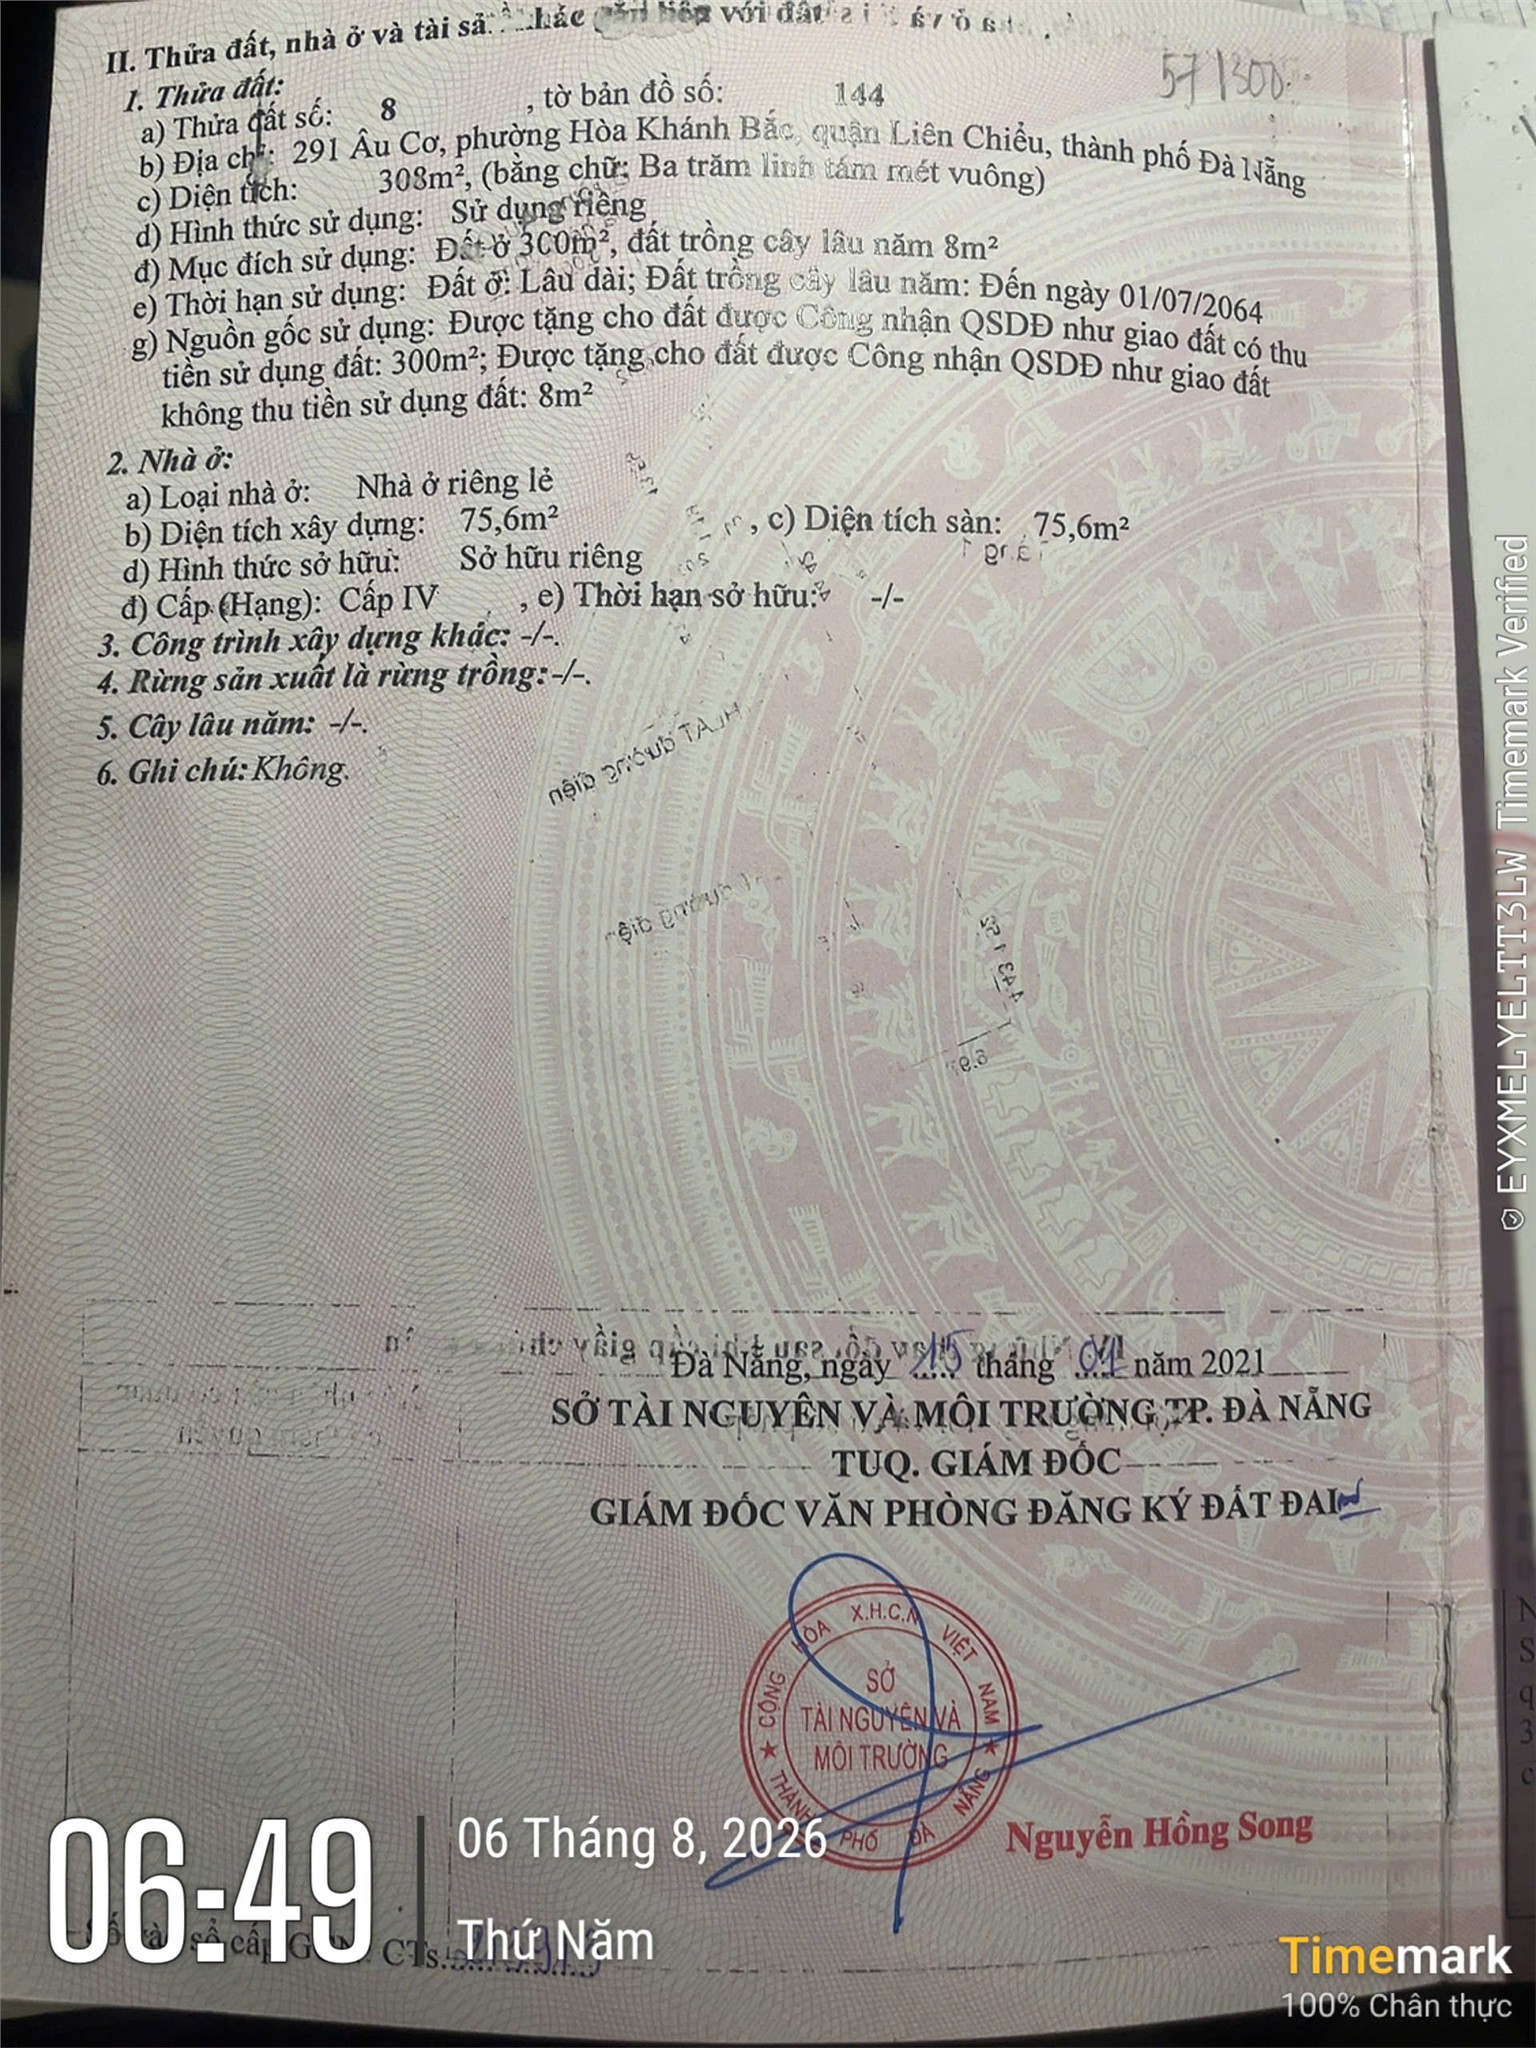 II. Thửa đất, nhà ở và tài sản khác gắn liền với đất
57/300
1. Thửa đất:
a) Thửa đất số: 8 , tờ bản đồ số: 144
b) Địa chỉ: 291 Âu Cơ, phường Hòa Khánh Bắc, quận Liên Chiểu, thành phố Đà Nẵng
c) Diện tích: 308m², (bằng chữ: Ba trăm linh tám mét vuông)
d) Hình thức sử dụng: Sử dụng riêng
đ) Mục đích sử dụng: Đất ở 300m², đất trồng cây lâu năm 8m²
e) Thời hạn sử dụng: Đất ở: Lâu dài; Đất trồng cây lâu năm: Đến ngày 01/07/2064
g) Nguồn gốc sử dụng: Được tặng cho đất được Công nhận QSDĐ như giao đất có thu
tiền sử dụng đất: 300m²; Được tặng cho đất được Công nhận QSDĐ như giao đất
không thu tiền sử dụng đất: 8m²
2. Nhà ở:
a) Loại nhà ở: Nhà ở riêng lẻ
b) Diện tích xây dựng: 75,6m² , c) Diện tích sàn: 75,6m²
d) Hình thức sở hữu: Sở hữu riêng
đ) Cấp (Hạng): Cấp IV , e) Thời hạn sở hữu: -/-
3. Công trình xây dựng khác: -/-.
4. Rừng sản xuất là rừng trồng: -/-.
5. Cây lâu năm: -/-.
6. Ghi chú: Không.
HLAT đường điện
đường điện
Đà Nẵng, ngày 15 tháng 01 năm 2021
SỞ TÀI NGUYÊN VÀ MÔI TRƯỜNG TP. ĐÀ NẴNG
TUQ. GIÁM ĐỐC
GIÁM ĐỐC VĂN PHÒNG ĐĂNG KÝ ĐẤT ĐAI
CỘNG HÒA X.H.C.N VIỆT NAM
SỞ
TÀI NGUYÊN VÀ
MÔI TRƯỜNG
THÀNH PHỐ ĐÀ NẴNG
Nguyễn Hồng Song
Số vào sổ cấp GCN: CTs
06:49
06 Tháng 8, 2026
Thứ Năm
Timemark
100% Chân thực
EYXMELYELTT3LW Timemark Verified